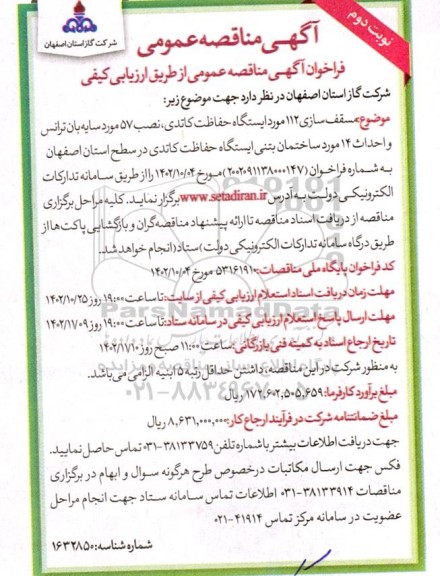 نوبت دوم
شرکت گاز استان اصفهان
آگهی مناقصه عمومی
فراخوان آگهی مناقصه عمومی از طریق ارزیابی کیفی
شرکت گاز استان اصفهان در نظر دارد جهت موضوع زیر:
موضوع:مسقف سازی ۱۱۲ مورد ایستگاه حفاظت کاتدی، نصب ۵۷ مورد سایه بان ترانس
و احداث ۱۴ مورد ساختمان بتنی ایستگاه حفاظت کاتدی در سطح استان اصفهان
به شماره فراخوان (۲۰۰۲۰۹۱۱۳۸۰۰۰۱۴۷) مورخ ۱۴۰۲/۱۰/۰۴ را از طریق سامانه تدارکات
الکترونیکی دولت به آدرس www.setadiran.ir برگزار نماید. کلیه مراحل برگزاری
مناقصه از دریافت اسناد مناقصه تا ارائه پیشنهاد مناقصه گران و بازگشایی پاکت ها از
طریق درگاه سامانه تدارکات الکترونیکی دولت (ستاد) انجام خواهد شد.
کد فراخوان پایگاه ملی مناقصات: ۵۳۱۶۱۹۱۰ مورخ ۱۴۰۲/۱۰/۰۴
مهلت زمان دریافت اسناد استعلام ارزیابی کیفی از سایت: تا ساعت ۱۹:۰۰ روز ۱۴۰۲/۱۰/۲۵
مهلت ارسال پاسخ استعلام ارزیابی کیفی در سامانه ستاد: تا ساعت ۱۹:۰۰ روز ۱۴۰۲/۱۱/۰۹
تاریخ ارجاع اسناد به کمیته فنی بازرگانی: ساعت ۱۱:۰۰ صبح روز ۱۴۰۲/۱۱/۱۰
به منظور شرکت در این مناقصه، داشتن حداقل رتبه ۵ ابنیه الزامی می باشد.
مبلغ برآورد کارفرما: ۱۷۲,۶۰۲,۵۰۵,۶۵۹ ریال
مبلغ ضمانتنامه شرکت در فرآیند ارجاع کار: ۸,۶۳۱,۰۰۰,۰۰۰ ریال
جهت دریافت اطلاعات بیشتر با شماره تلفن ۳۸۱۳۳۷۵۹-۰۳۱ تماس حاصل نمایید.
فکس جهت ارسال مکاتبات درخصوص طرح هرگونه سوال و ابهام در برگزاری
مناقصات ۳۸۱۳۳۹۱۴-۰۳۱ اطلاعات تماس سامانه ستاد جهت انجام مراحل
عضویت در سامانه مرکز تماس ۴۱۹۱۴-۰۲۱
شماره شناسه: ۱۶۳۲۸۵۰
ParsNamadData
۰۲۱-۸۸۳۴۹۶۷۰-۵